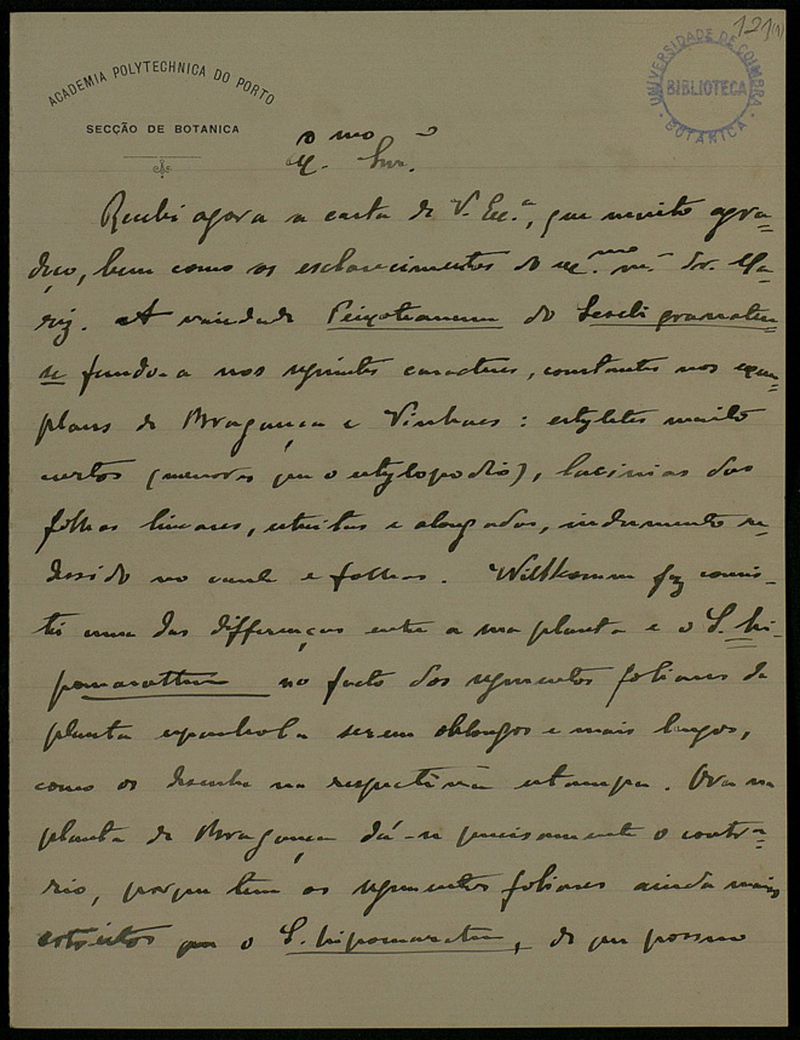 121(1)
ACADEMIA POLYTECHNICA DO PORTO
SECÇÃO DE BOTANICA
UNIVERSIDADE DE COIMBRA
BIBLIOTECA
BOTANICA
Ex.mo Snr.
Recebi agora a carta de V. Ex.a, que muito agra-
deço, bem como os esclarecimentos do ex.mo sr. dr. Ma-
riz. A variedade Peixotianum do Seseli granaten-
se funda-a nos seguintes caracteres, constantes nos exem-
plares de Bragança e Vinhaes: estyletes muito
curtos (menores que o estylopodio), lacinias das
folhas lineares, estreitas e alongadas, indumento re-
dusido no caule e folhas. Willkomm faz consis-
tir uma das differenças entre a sua planta e o S. hi-
pomarathrum no facto dos segmentos foliares da
planta espanhola serem oblongos e mais largos,
como os desenha na respectiva estampa. Ora na
planta de Bragança dá-se precisamente o contra-
rio, porque tem os segmentos foliares ainda mais
estreitos que o S. hipomaratrum, de que possuo